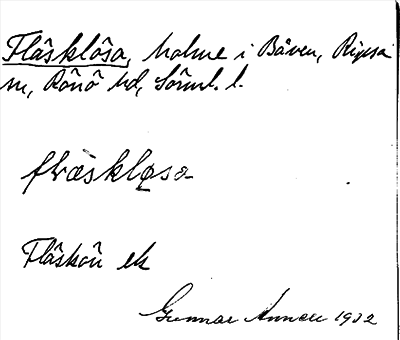 Fläsklösa, holme i Båven, Ripsa
sn, Rönö hd, Sörml. l.
flväsklosa
Fläskön ek
Gunnar 1932